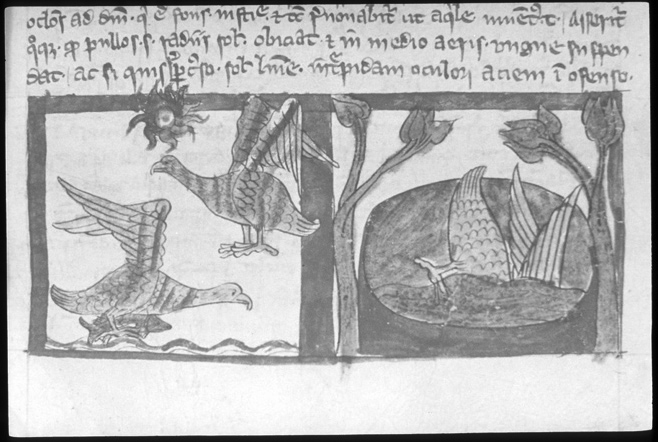 oclōs ad dnm̄. q̄ ē fons iustic̄. & tc̄ renouabit̄ ut aqͥle iuuent̄ t̄. Asserit̄
qͦqꝫ. qp pullos .s. radiis sol. obiciat & in medio aeris. ungue suspen
dat. ac si quis sol. lum̄e. int̄pidam oculor aciem